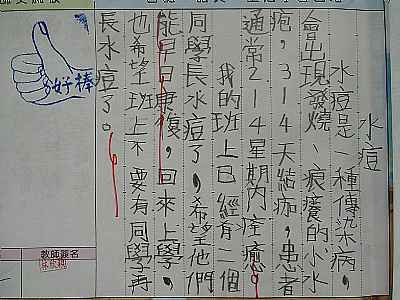 水痘
水痘是一種傳染病，
會出現發燒、痕癢的小水
疱，3-4天結痂，患者
通常2-4星期內痊癒。
我的班上已經有一個
同學長水痘了，希望他們
能早日康復，回來上學，
也希望班上不要有同學再
長水痘了。
好棒
教師簽名